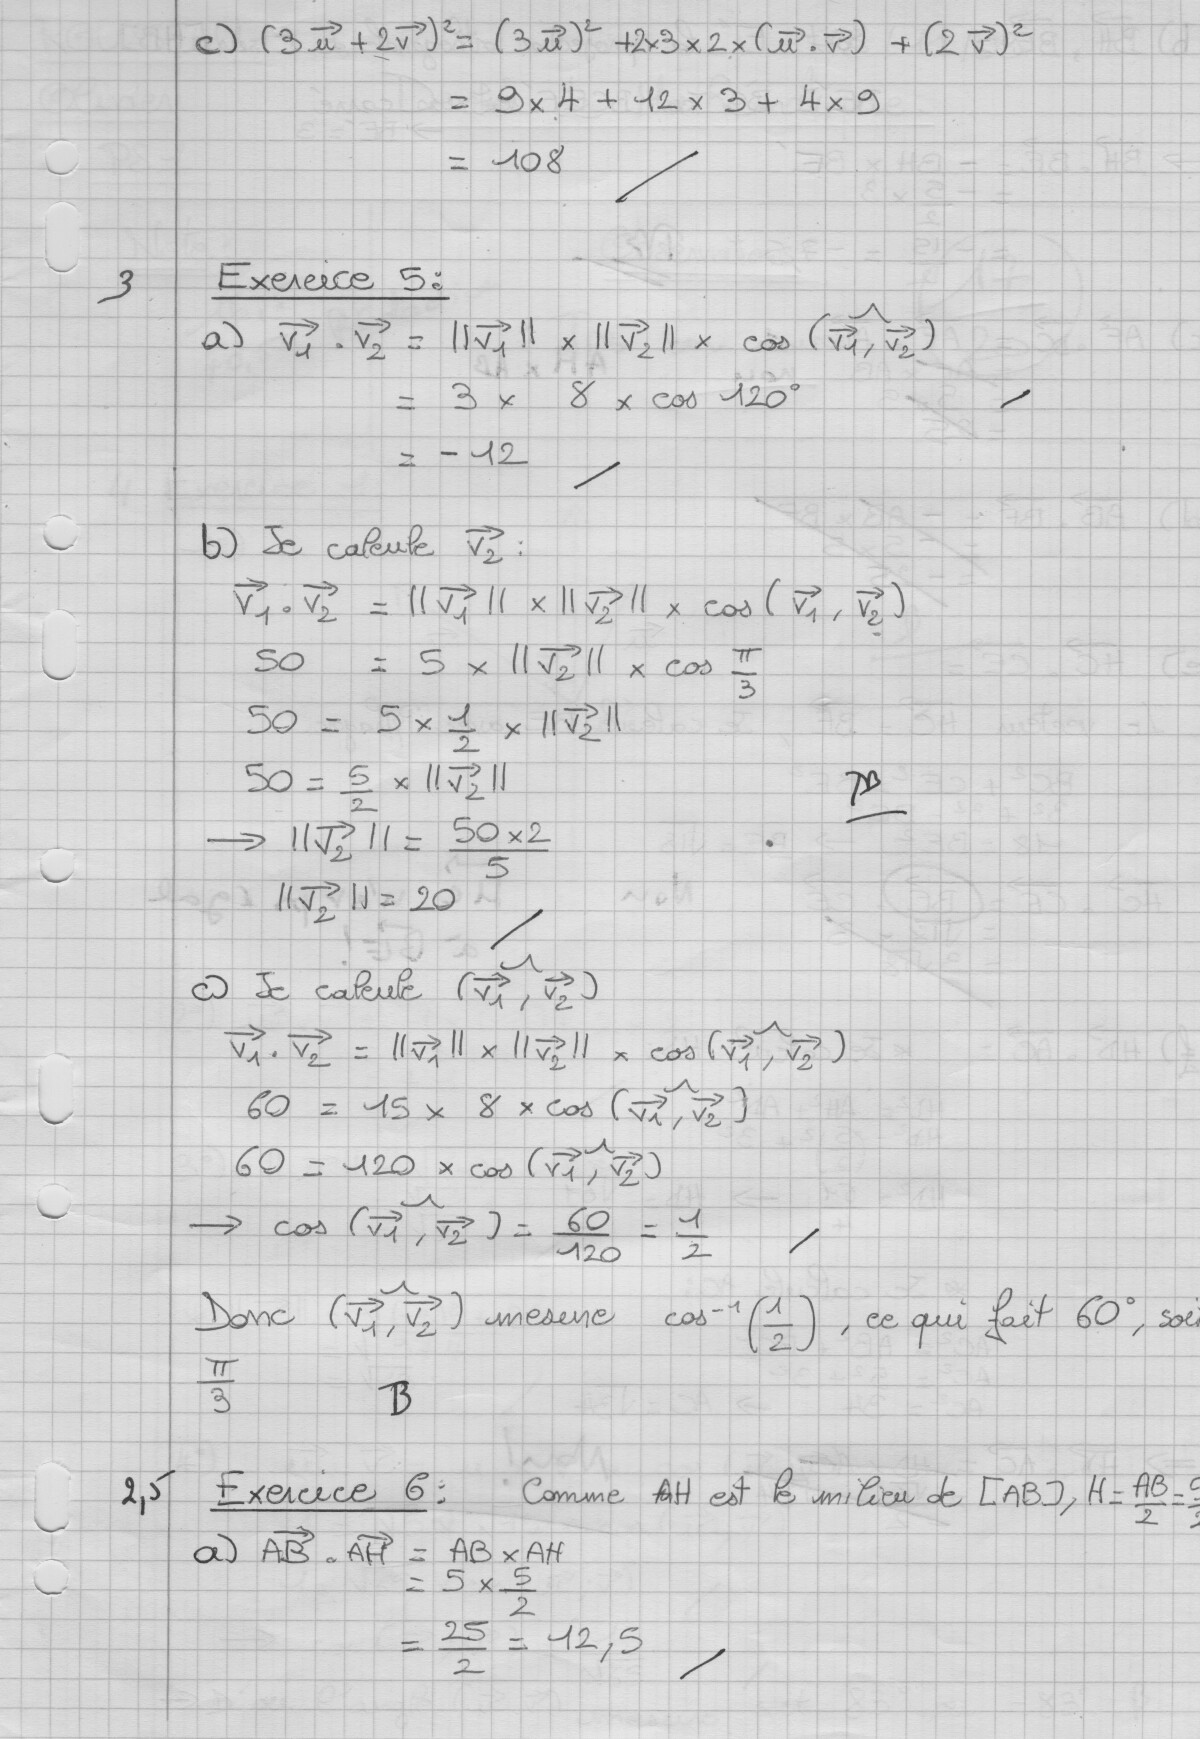 c) (3u⃗ + 2v⃗)² = (3u⃗)² + 2×3×2×(u⃗.v⃗) + (2v⃗)²
= 9×4 + 12×3 + 4×9
= 108
3 Exercice 5:
a) v₁⃗ . v₂⃗ = ||v₁⃗|| × ||v₂⃗|| × cos (v₁⃗, v₂⃗)
= 3 × 8 × cos 120°
= -12
b) Je calcule v₂⃗ :
v₁⃗ . v₂⃗ = ||v₁⃗|| × ||v₂⃗|| × cos (v₁⃗, v₂⃗)
50 = 5 × ||v₂⃗|| × cos π/3
50 = 5 × 1/2 × ||v₂⃗||
50 = 5/2 × ||v₂⃗||
→ ||v₂⃗|| = 50×2/5
||v₂⃗|| = 20
c) Je calcule (v₁⃗, v₂⃗)
v₁⃗ . v₂⃗ = ||v₁⃗|| × ||v₂⃗|| × cos (v₁⃗, v₂⃗)
60 = 15 × 8 × cos (v₁⃗, v₂⃗)
60 = 120 × cos (v₁⃗, v₂⃗)
→ cos (v₁⃗, v₂⃗) = 60/120 = 1/2
Donc (v₁⃗, v₂⃗) mesure cos⁻¹(1/2), ce qui fait 60°, soi
π/3 B
2,5 Exercice 6: Comme AH est le milieu de [AB], H = AB/2 =
a) AB⃗ . AH⃗ = AB × AH
= 5 × 5/2
= 25/2 = 12,5